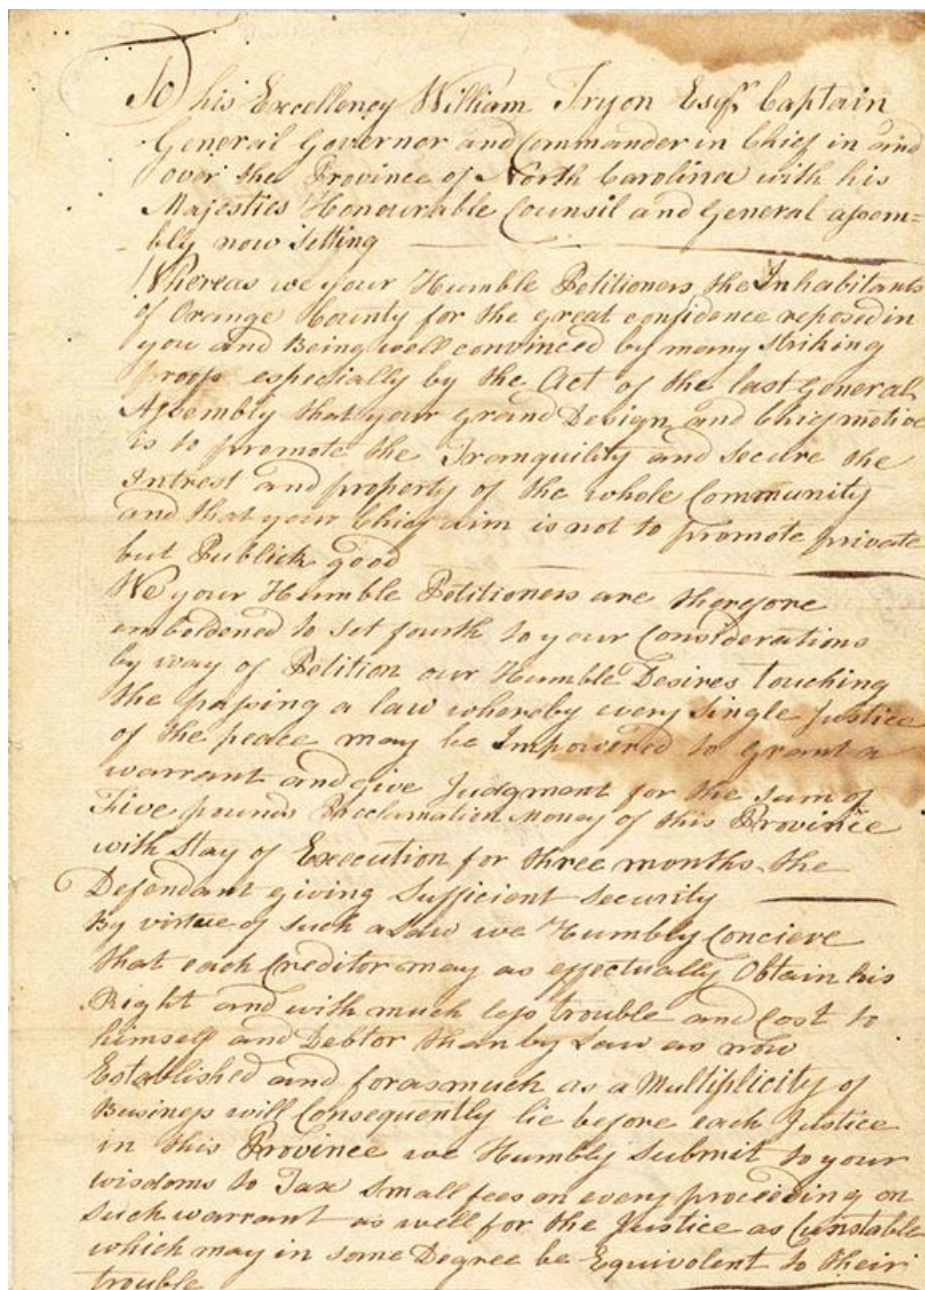 To his Excellency William Tryon Esqr. Captain
General Governor and Commander in Chief in and
over the Province of North Carolina with his
Majesties Honourable Counsil and General assem=
bly now Sitting
Whereas we your Humble Petitioners the Inhabitants
of Orange County for the great confidence reposed in
you and Being well convinced by many striking
proofs especially by the Act of the last General
Assembly that your grand Design and Chief motive
is to promote the Tranquility and secure the
Intrest and property of the whole Community
and that your Chief aim is not to promote private
but Publick good
We your Humble Petitioners are therefore
emboldened to set fourth to your Considerations
by way of Petition our Humble Desires touching
the passing a law whereby every single Justice
of the peace may be Impowered to grant a
warrant and give Judgment for the sum of
Five pounds Proclamation Money of this Province
with Stay of Execution for three months the
Defendant giving Sufficient Security
By virtue of such a Law we Humbly Concieve
that each Creditor may as effectually Obtain his
Right and with much less trouble and Cost to
himself and Debtor than by Law as now
Established and forasmuch as a Multiplicity of
Business will Consequently lie before each Justice
in this Province we Humbly Submit to your
wisdoms to Tax small fees on every proceeding on
such warrant as well for the Justice as Cunstable
which may in some Degree be Equivolent to their
trouble